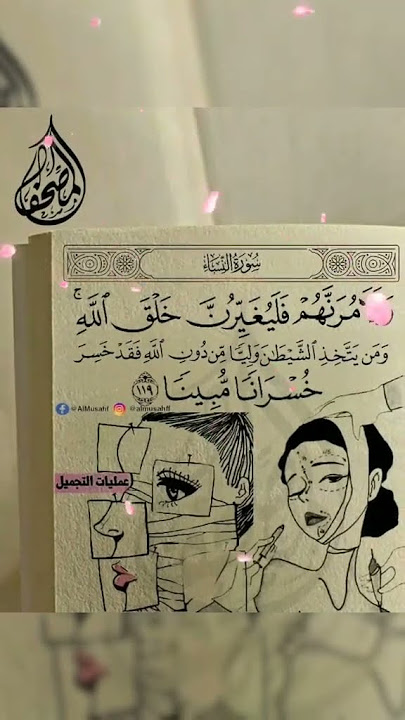 المصحف
سُورَةُ النِّسَاءِ
وَلَآمُرَنَّهُمْ فَلَيُغَيِّرُنَّ خَلْقَ ٱللَّهِ ۚ
وَمَن يَتَّخِذِ ٱلشَّيْطَٰنَ وَلِيًّا مِّن دُونِ ٱللَّهِ فَقَدْ خَسِرَ
خُسْرَانًا مُّبِينًا ١١٩
@AlMusahf @almusahff
عمليات التجميل